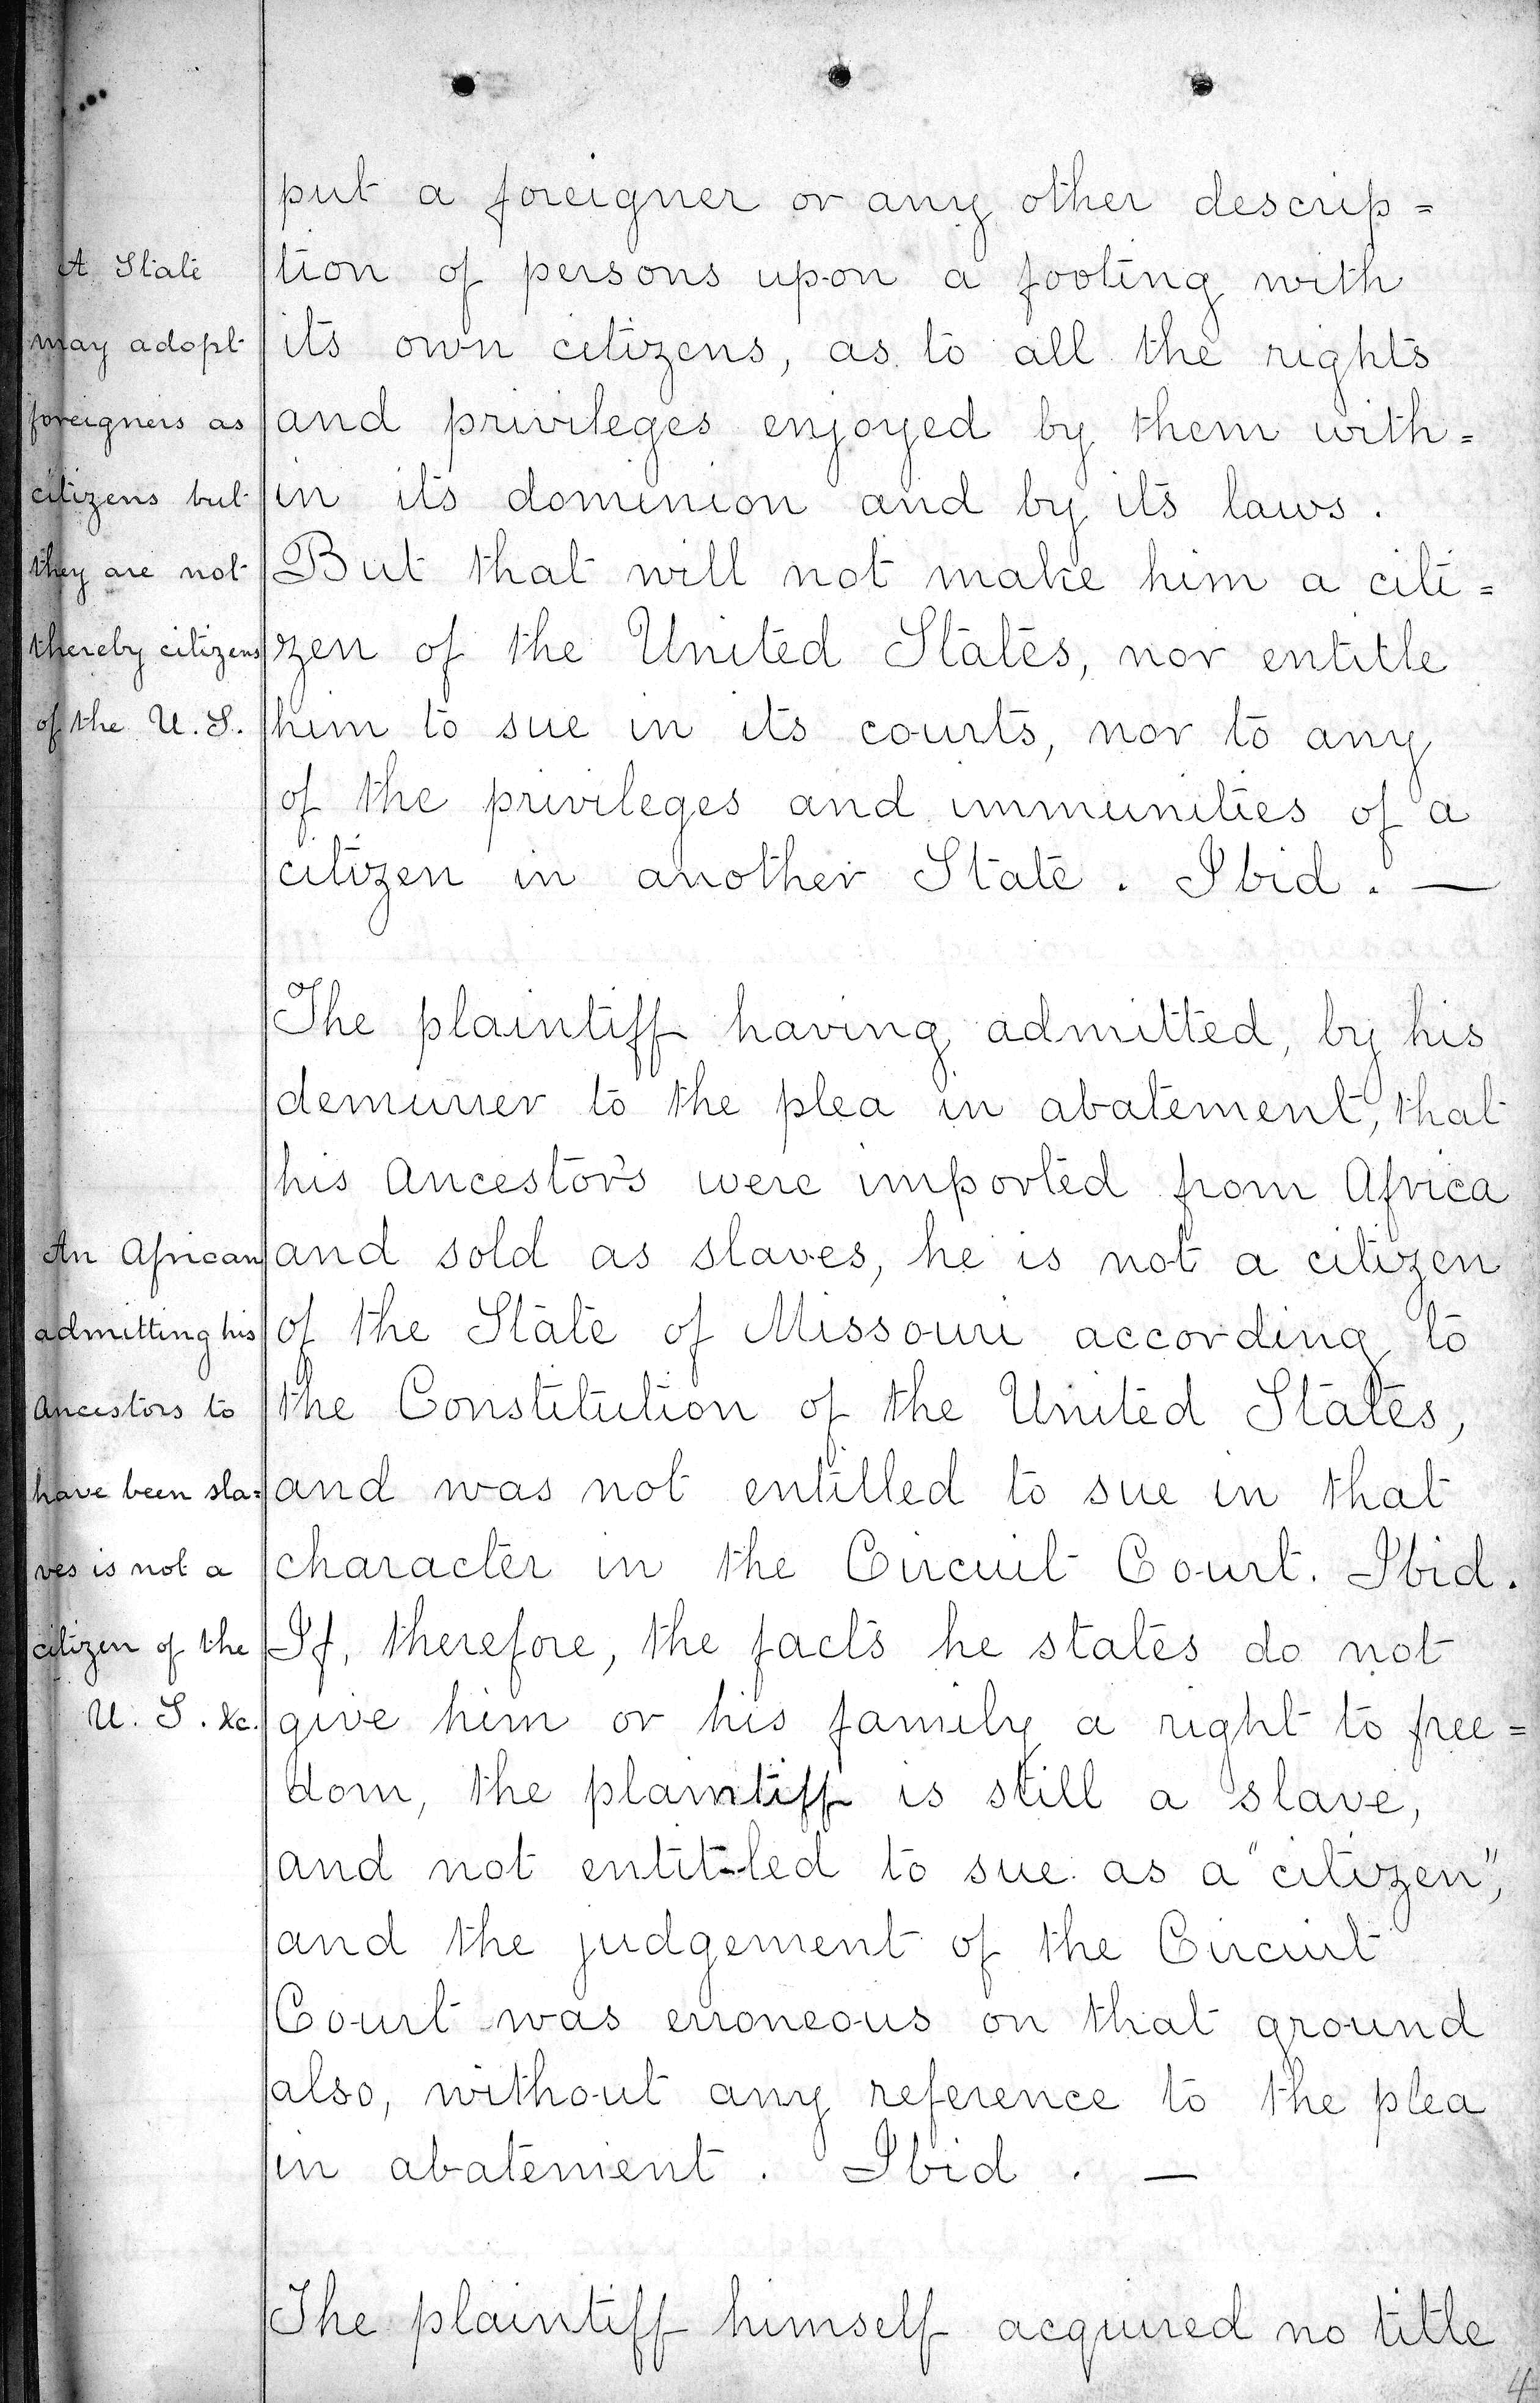 put a foreigner or any other descrip=
tion of persons upon a footing with
its own citizens, as to all the rights
and privileges enjoyed by them with=
in its dominion and by its laws.
But that will not make him a citi=
zen of the United States, nor entitle
him to sue in its courts, nor to any
of the privileges and immunities of a
citizen in another State. Ibid. —
A State
may adopt
foreigners as
citizens but
they are not
thereby citizens
of the U. S.
The plaintiff having admitted, by his
demurrer to the plea in abatement, that
his Ancestor's were imported from Africa
and sold as slaves, he is not a citizen
of the State of Missouri according to
the Constitution of the United States,
and was not entitled to sue in that
character in the Circuit Court. Ibid.
If, therefore, the facts he states do not
give him or his family a right to free=
dom, the plaintiff is still a slave,
and not entitled to sue as a "citizen",
and the judgement of the Circuit
Court was erroneous on that ground
also, without any reference to the plea
in abatement. Ibid. —
An African
admitting his
Ancestors to
have been sla=
ves is not a
citizen of the
U. S. &c.
The plaintiff himself acquired no title
4